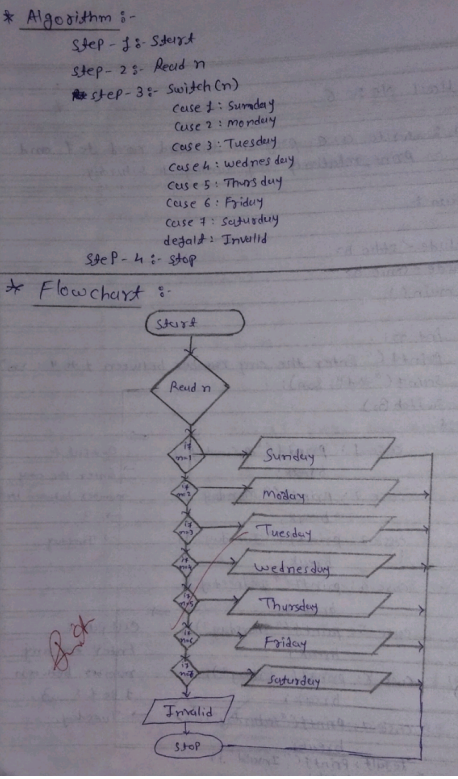 * Algorithm :-
Step - 1 :- Start
Step - 2 :- Read n
Step - 3 :- Switch (n)
Case 1 : Sunday
Case 2 : Monday
Case 3 : Tuesday
Case 4 : Wednesday
Case 5 : Thursday
Case 6 : Friday
Case 7 : Saturday
defalt : Invalid
Step - 4 :- Stop
* Flowchart :-
Start
Read n
if n=1
Sunday
if n=2
Moday
if n=3
Tuesday
if n=4
Wednesday
if n=5
Thursday
if n=6
Friday
if n=7
Saturday
Invalid
Stop